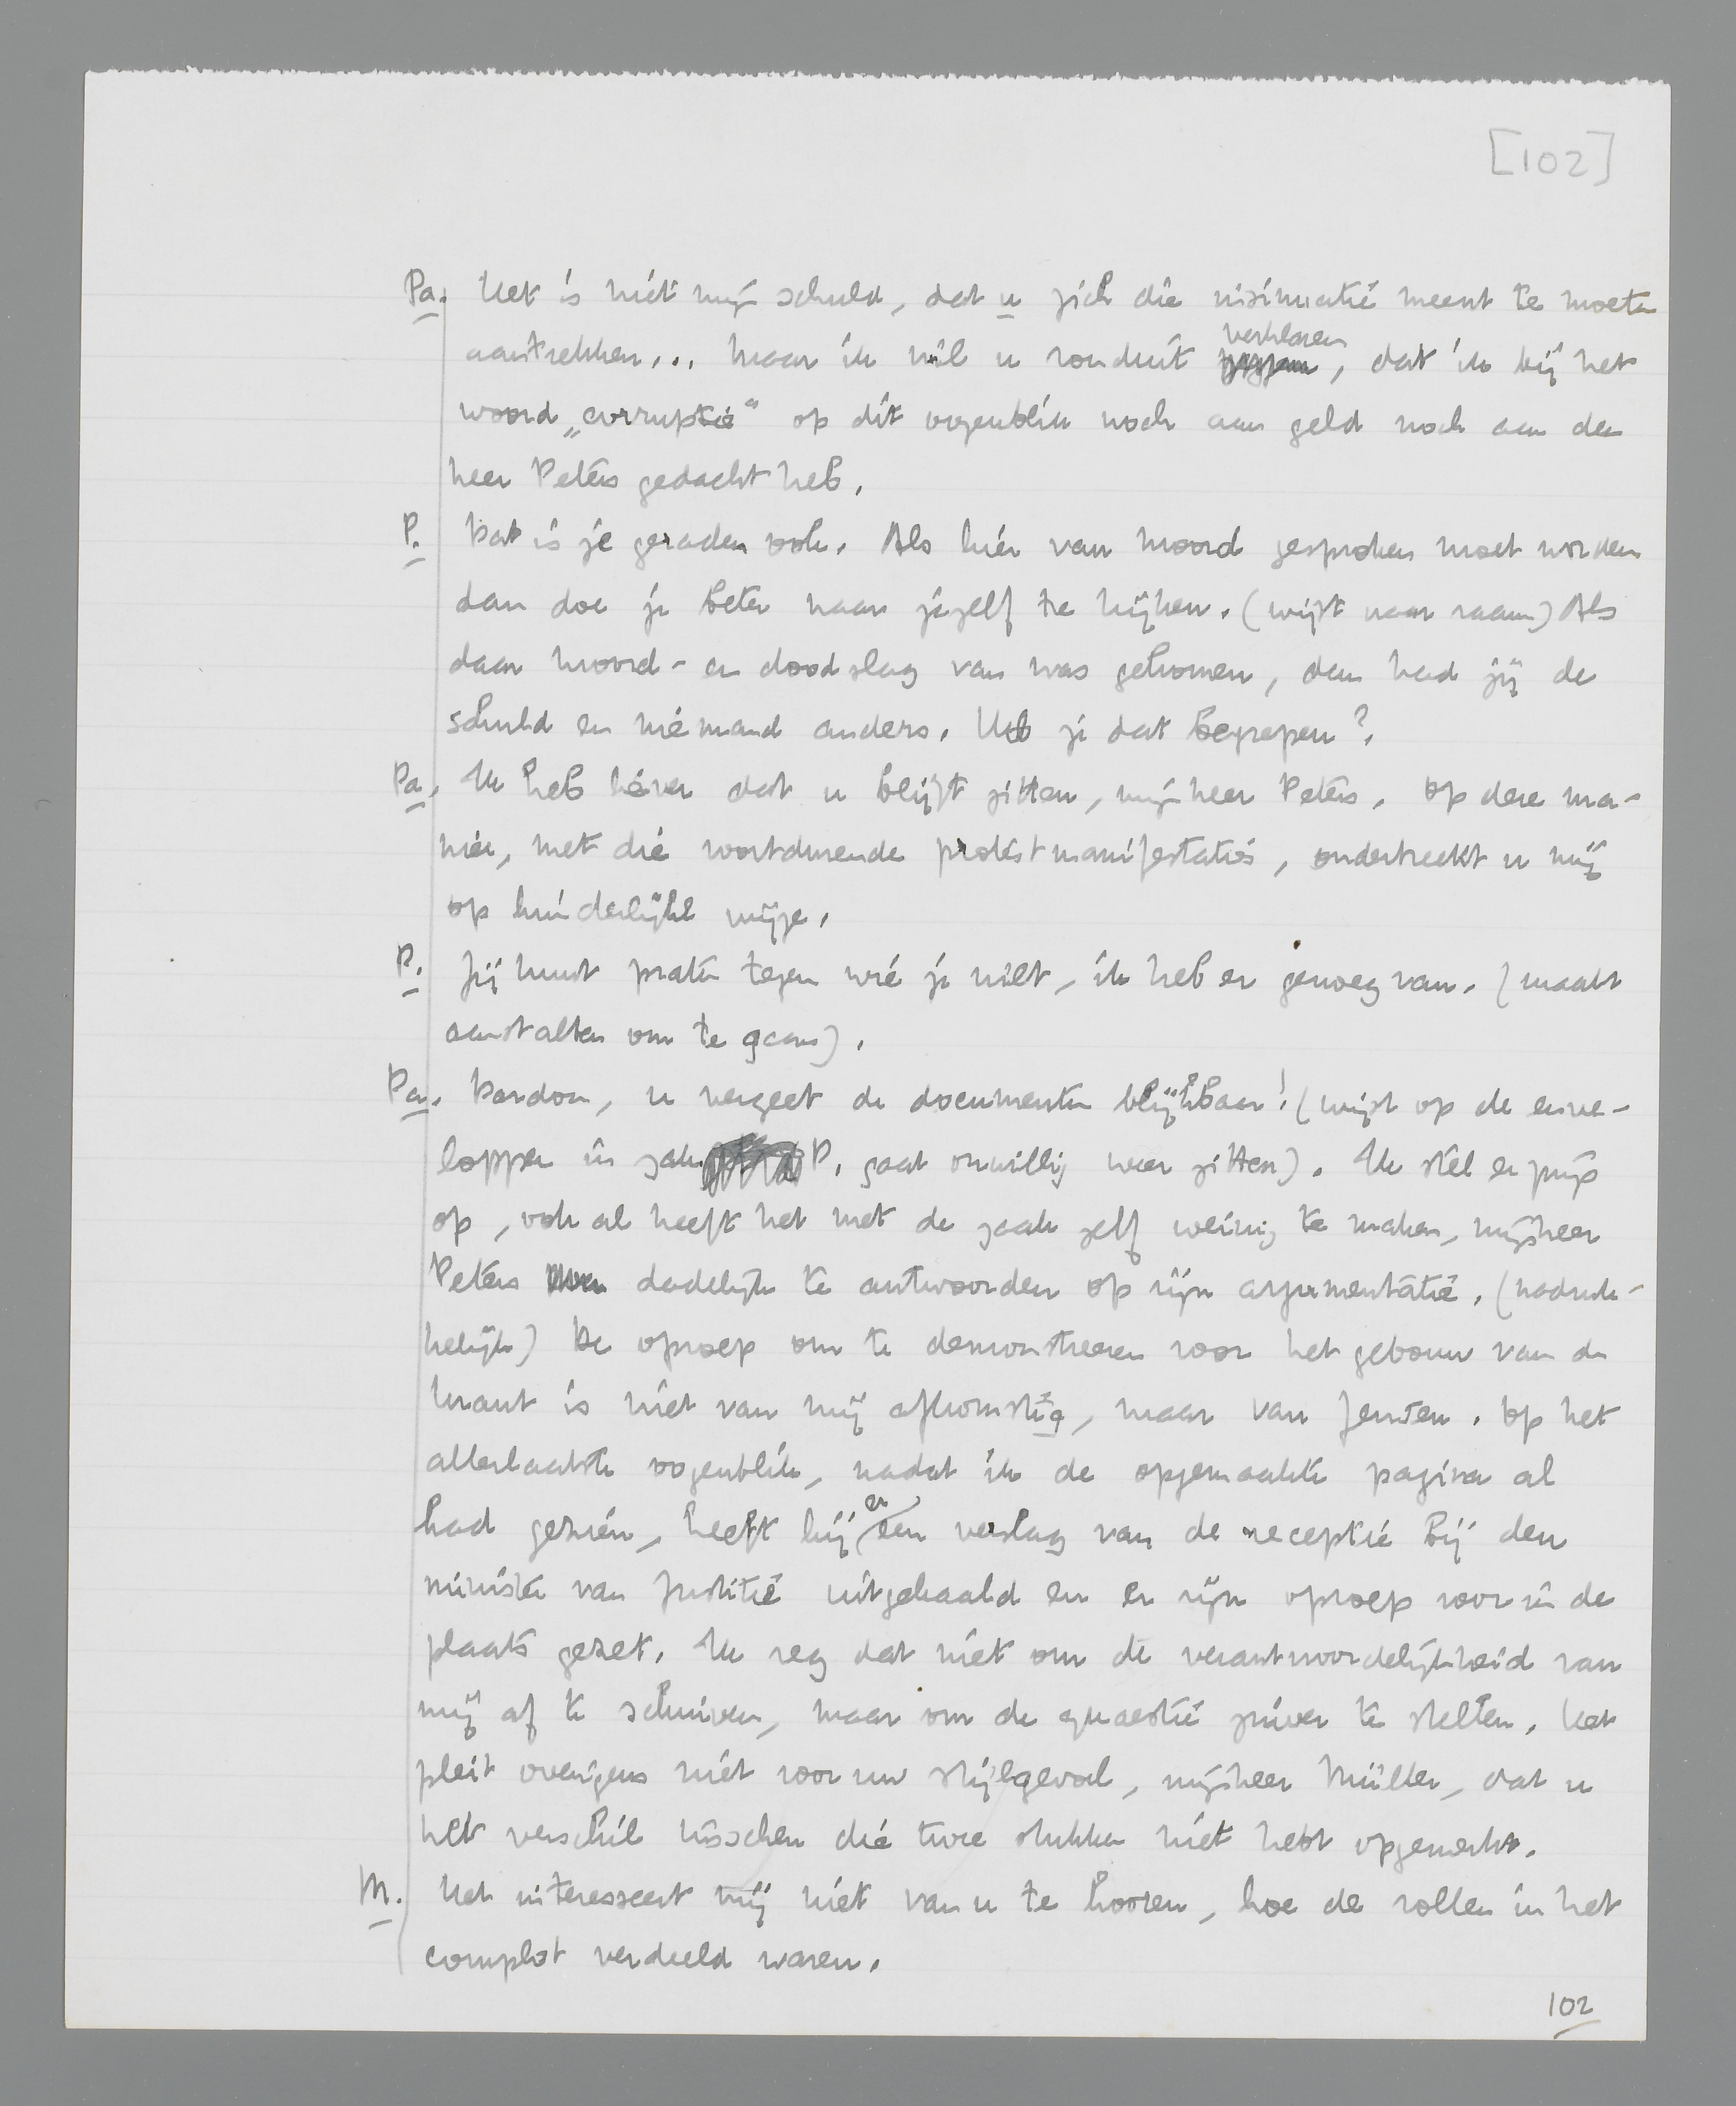 [102]
Pa. Het is niet mijn schuld, dat u zich die insinuatie meent te moeten
verklaren
aantrekken... maar ik wil u ronduit zeggen, dat ik bij het
woord „corruptie" op dit oogenblik noch aan geld noch aan den
heer Peters gedacht heb.
P. Dat is je geraden ook. Als hier van moord gesproken moet worden
dan doe je beter naar jezelf te kijken. (wijst naar raam) Als
daar moord- en doodslag van was gekomen, dan had jij de
schuld en niemand anders. Heb je dat begrepen?
Pa. Ik heb liever dat u blijft zitten, mijnheer Peters. Op deze ma-
nier, met die voortdurende protestmanifestaties, onderbreekt u mij
op hinderlijke wijze.
P. Jij kunt praten tegen wie je wilt, ik heb er genoeg van. (maakt
aanstalten om te gaan).
Pa. Pardon, u vergeet de documenten blijkbaar! (wijst op de enve-
loppen in zak P. gaat onwillig weer zitten). Ik stel er prijs
op, ook al heeft het met de zaak zelf weinig te maken, mijnheer
Peters dadelijk te antwoorden op zijn argumentatie. (nadruk-
kelijk) De oproep om te demonstreeren voor het gebouw van de
krant is niet van mij afkomstig, maar van Jensen. Op het
allerlaatste oogenblik, nadat ik de opgemaakte pagina al
er
had gezien, heeft hij een verslag van de receptie bij den
minister van Justitie uitgehaald en er zijn oproep voor in de
plaats gezet. Ik zeg dat niet om de verantwoordelijkheid van
mij af te schuiven, maar om de quaestie zuiver te stellen. Het
pleit overigens niet voor uw stijlgevoel, mijnheer Müller, dat u
het verschil tusschen die twee stukken niet hebt opgemerkt.
M. Het interesseert mij niet van u te hooren, hoe de rollen in het
complot verdeeld waren.
102